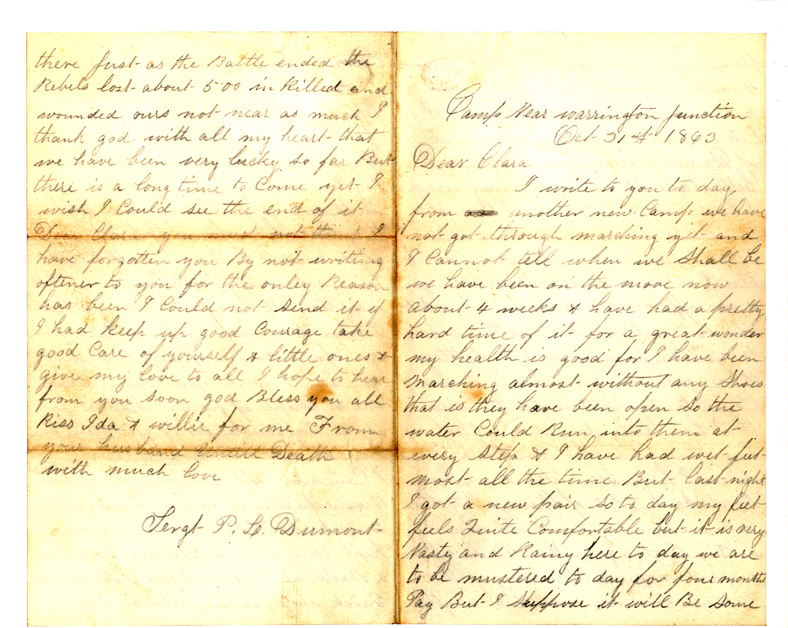 Camp Near Warrington Junction
Oct 31st 1863
Dear Clara
I write to you to day
from another new Camp we have
not got through marching yet and
I Cannot tell when we Shall be
we have been on the move now
about 4 weeks & have had a pretty
hard time of it for a great wonder
my health is good for I have been
Marching almost without any Shoes
that is they have been open so the
water Could Run into them at
every step & I have had wet feet
most all the time But last night
I got a new pair so to day my feet
feels Quite Comfortable but it is very
Nasty and Rainy here to day we are
to be mustered to day for four months
Pay But I Suppose it will Be Some
there just as the Battle ended the
Rebels lost about 500 in Killed and
wounded ours not near as much I
thank god with all my heart that
we have been very lucky so far But
there is a long time to Come yet I
wish I Could see the end of it
Dear Clara you must not think I
have forgotten you By not writing
oftener to you for the onley Reason
has been I Could not Send it if
I had Keep up good Courage take
good Care of yourself & little ones &
give my love to all I hope to hear
from you soon god Bless you all
Kiss Ida & willie for me From
your husband Untill Death
with much love
Sergt P. Dumont